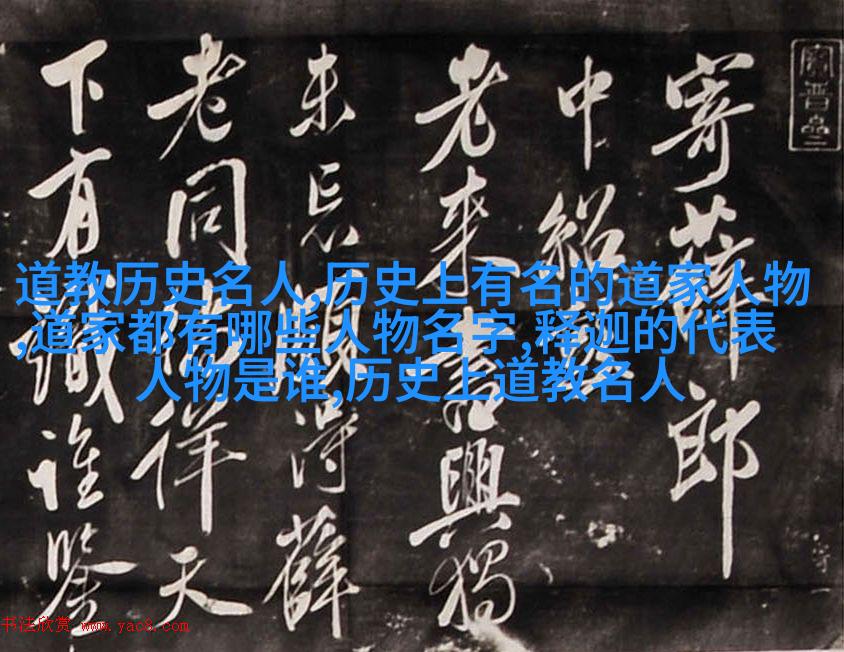 寶晉
寄薛郎
中紹
老来書興獨
未忘頤得薛
老同徜徉天
下有識誰鑒
道教历史名人,历史上有名的道家人物
,道家都有哪些人物名字,释迦的代表
人物是谁,历史上道教名人
书法欣赏 www.yac8.com